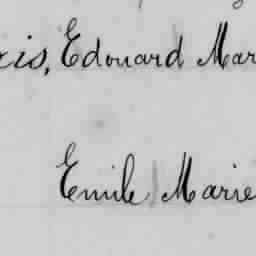 Edouard Mar
Emile Marie